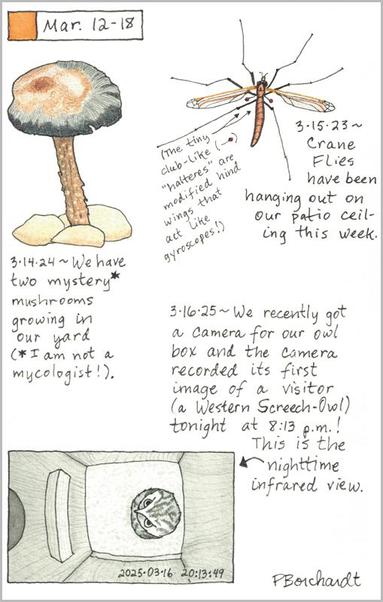 Mar. 12-18
3.15.23~
Crane
Flies
have been
hanging out on
our patio ceil-
ing this week.
(The tiny
club-like (—•)
"halteres" are
modified hind
wings that
act like
gyroscopes!)
3.14.24~ We have
two mystery*
mushrooms
growing in
our yard
(*I am not a
mycologist!).
3.16.25~ We recently got
a camera for our owl
box and the camera
recorded its first
image of a visitor
(a Western Screech-Owl)
tonight at 8:13 p.m.!
This is the
nighttime
infrared view.
2025.03.16 20:13:49
PBorchardt